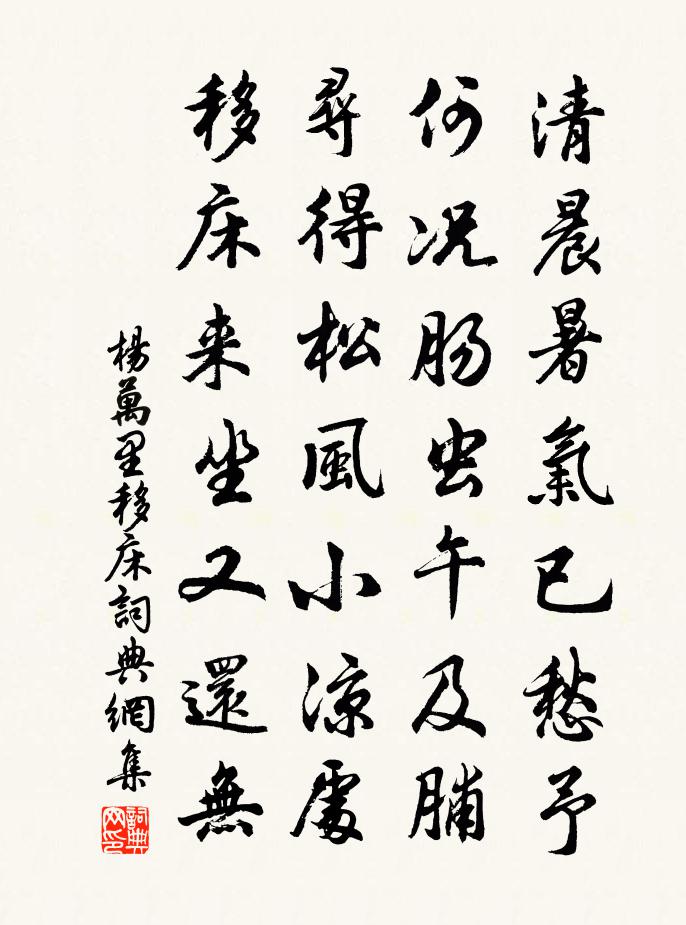 清晨暑氣已愁予
何况肠虫午及脯
尋得松風小涼處
移床来坐又還無
楊萬里移床詞典網集
詞典网印